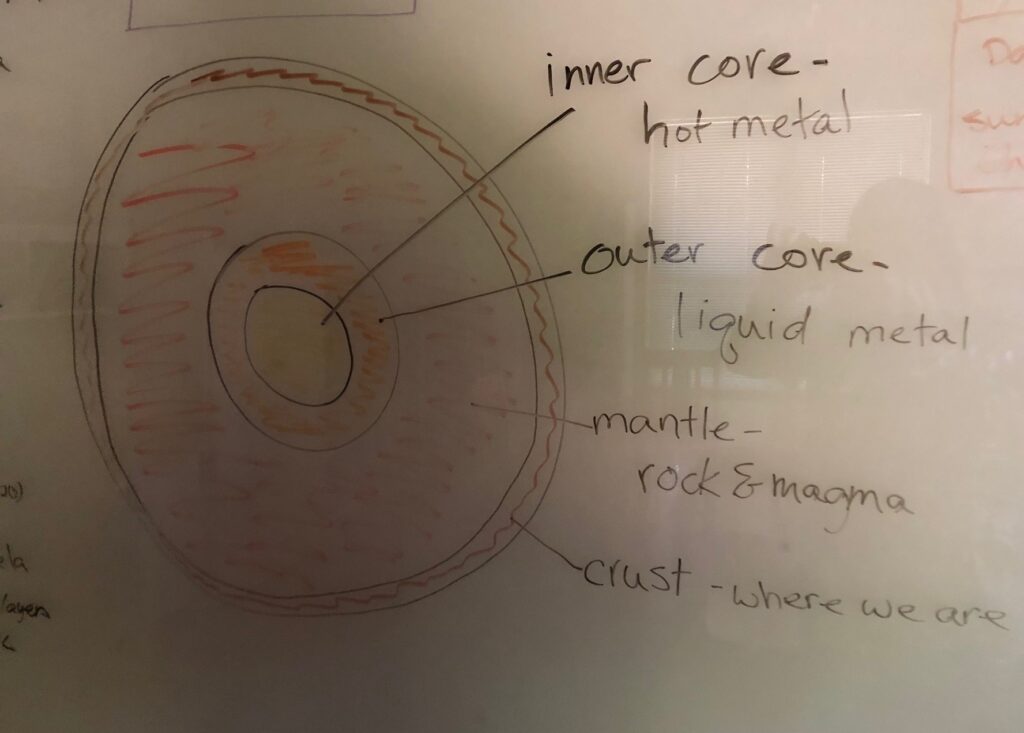 inner core-
hot metal
outer core-
liquid metal
mantle-
rock & magma
crust - where we are
layers